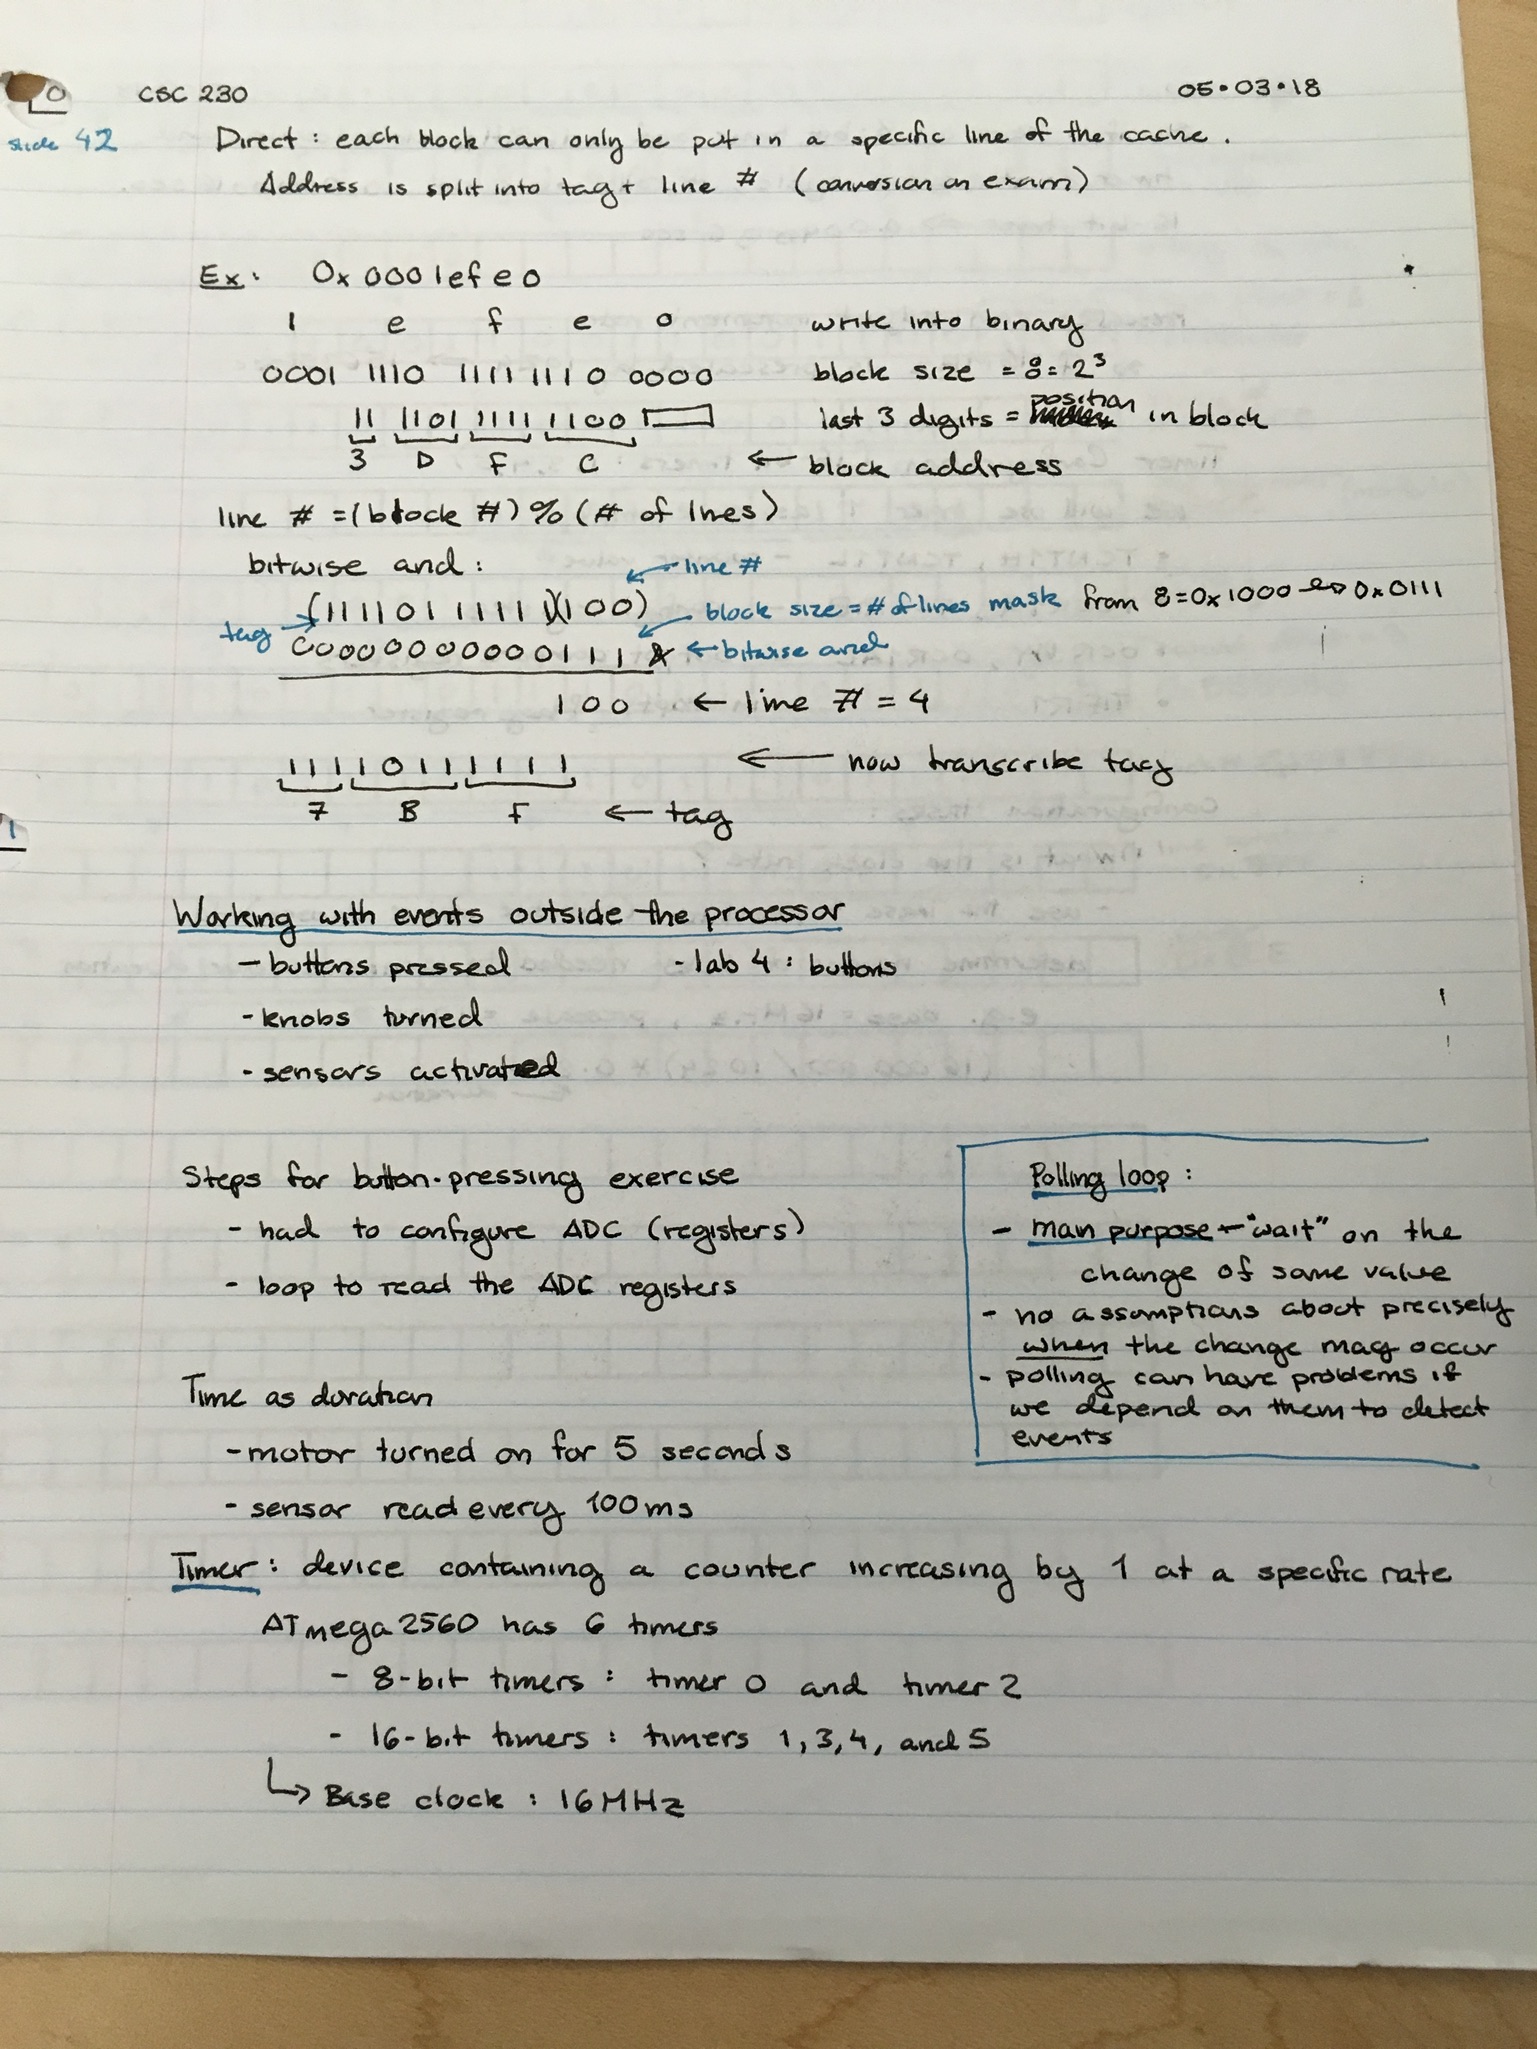 CSC 230
05·03·18
slide 42
Direct : each block can only be put in a specific line of the cache.
Address is split into tag + line # (conversion on exam)
Ex: 0x0001efe0
1 e f e 0 write into binary
0001 1110 1111 1110 0000 block size = 8 = 2³
11 1101 1111 1100 last 3 digits = position in block
3 D F C ← block address
line # = (block #) % (# of lines)
bitwise and :
← line #
(11110111111)(100) block size = # of lines mask from 8=0x1000 → 0x0111
tag →
00000000000111 & ← bitwise and
100 ← line # = 4
11110111111 ← now transcribe tag
7 B F ← tag
1
Working with events outside the processor
- buttons pressed - lab 4 : buttons
- knobs turned
- sensors activated
Steps for button-pressing exercise
- had to configure ADC (registers)
- loop to read the ADC registers
Polling loop :
- main purpose - "wait" on the
change of some value
- no assumptions about precisely
when the change may occur
- polling can have problems if
we depend on them to detect
events
Time as duration
- motor turned on for 5 seconds
- sensor read every 100ms
Timer : device containing a counter increasing by 1 at a specific rate
ATmega2560 has 6 timers
- 8-bit timers : timer 0 and timer 2
- 16-bit timers : timers 1,3,4, and 5
↳ Base clock : 16MHz